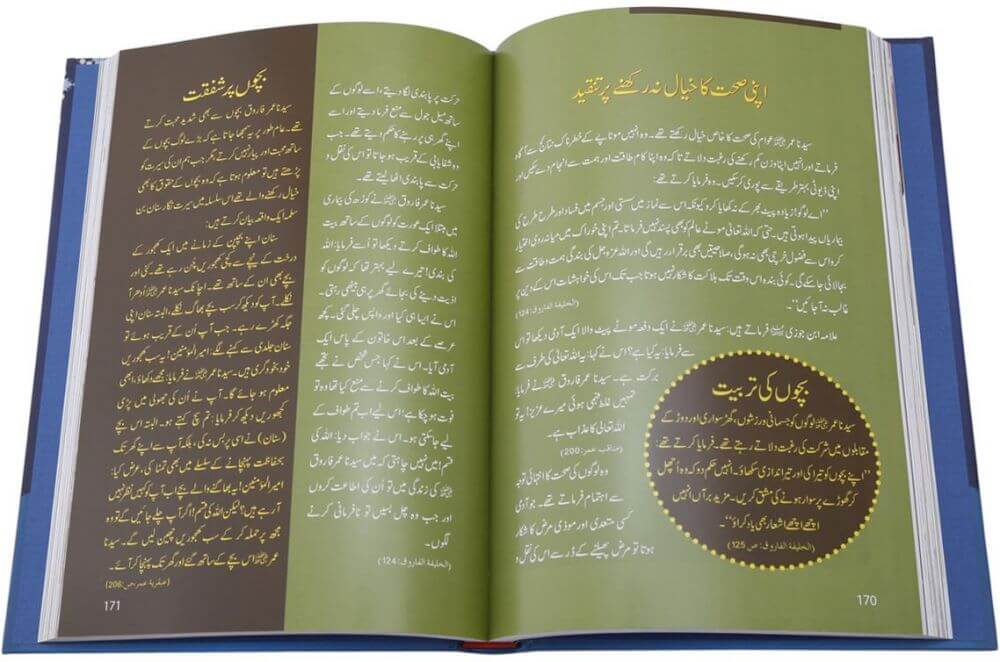 اپنی صحت کا خیال نہ رکھنے پر تنقید
سیدنا عمر ﷜ عوام کی صحت کا خاص خیال رکھتے تھے۔ وہ انہیں موٹاپے کے خطرناک نتائج سے آگاہ
فرماتے اور انہیں اپنا وزن کم رکھنے کی رغبت دلاتے تاکہ وہ اپنا کام طاقت اور ہمت سے انجام دے سکیں اور
اپنی ڈیوٹی بہتر طریقے سے پوری کر سکیں۔ وہ فرمایا کرتے تھے:
"اے لوگو! زیادہ پیٹ بھر کے نہ کھایا کرو کیونکہ اس سے نماز میں سستی اور جسم میں فساد اور طرح طرح کی
بیماریاں پیدا ہوتی ہیں۔ حتیٰ کہ اللہ تعالیٰ موٹے عالم کو بھی پسند نہیں فرماتا۔ تم اپنی خوراک میں میانہ روی اختیار
کرو اس سے فضول خرچی بھی نہ ہوگی، صلاحیتیں بھی برقرار رہیں گی اور اللہ عزوجل کی بندگی ہمت و طاقت سے
بجا لائی جا سکے گی۔ کوئی بندہ اس وقت تک ہلاکت کا شکار نہیں ہوتا جب تک اس کی خواہشات اس کے دین پر
غالب نہ آ جائیں"۔
(الخلیفة الفاروق: 124)
علامہ ابن جوزی ﷫ فرماتے ہیں: سیدنا عمر ﷜ نے ایک دفعہ موٹے پیٹ والا ایک آدمی دیکھا تو اس
سے فرمایا: یہ کیا ہے؟ اس نے کہا: یہ اللہ تعالیٰ کی طرف سے
برکت ہے۔ سیدنا عمر فاروق ﷜ نے فرمایا:
تمہیں غلط فہمی ہوئی میرے عزیز! یہ تو
اللہ تعالیٰ کا عذاب ہے۔
(مناقب عمر: 200)
وہ لوگوں کی صحت کا انتہائی توجہ
سے اہتمام فرماتے تھے۔ جو آدمی
کسی متعدی اور موذی مرض کا شکار
ہوتا تو مرض پھیلنے کے ڈر سے اس کی نقل و
بچوں کی تربیت
سیدنا عمر ﷜ لوگوں کو جسمانی ورزشوں، گھڑ سواری اور دوڑ کے
مقابلوں میں شرکت کی رغبت دلاتے رہتے تھے۔ فرمایا کرتے تھے:
"اپنے بچوں کو تیراکی اور تیر اندازی سکھاؤ۔ انہیں حکم دو کہ وہ اُچھل
کر گھوڑے پر سوار ہونے کی مشق کریں۔ مزید برآں انہیں
اچھے اچھے اشعار بھی یاد کراؤ"۔
(الخلیفة الفاروق: ص 125)
170
حرکت پر پابندی لگا دیتے، اسے لوگوں کے
ساتھ میل جول سے منع فرما دیتے اور اسے
اپنے گھر ہی پر رہنے کا حکم دیتے تھے۔ جب
وہ شفایابی کے قریب ہو جاتا تو اس کی نقل و
حرکت سے پابندی اٹھا لیتے تھے۔
سیدنا عمر فاروق ﷜ نے کوڑھ کی بیماری
میں مبتلا ایک عورت کو لوگوں کے ساتھ بیت
اللہ کا طواف کرتے دیکھا تو اُسے فرمایا: اللہ
کی بندی! تیرے لیے بہتر تھا کہ لوگوں کو
اذیت دینے کی بجائے گھر پر ہی بیٹھی رہتی۔
اس نے ایسا ہی کیا اور واپس چلی گئی۔ کچھ
عرصے کے بعد اس خاتون کے پاس ایک
آدمی آیا۔ اس نے کہا: جس شخص نے تجھے
بیت اللہ کا طواف کرنے سے منع کیا تھا وہ تو
فوت ہو چکا ہے! اس لیے اب تم طواف کے
لیے جا سکتی ہو۔ اس نے جواب دیا: اللہ کی
قسم! میں نہیں چاہتی کہ میں سیدنا عمر فاروق
﷜ کی زندگی میں تو اُن کی اطاعت کروں
اور جب وہ چل بسیں تو نافرمانی کرنے
لگوں۔
(الخلیفة الفاروق: 124)
بچوں پر شفقت
سیدنا عمر فاروق بچوں سے بھی شدید محبت کرتے
تھے۔ عام طور پر یہ سمجھا جاتا ہے کہ بڑے لوگ بچوں کے
ساتھ محبت اور پیار نہیں کرتے مگر جب ہم ان کی سیرت کو
پڑھتے ہیں تو معلوم ہوتا ہے کہ وہ بچوں کے حقوق کا بھی
خیال رکھنے والے تھے اس سلسلہ میں سیرت نگار سنان بن
سلمہ ایک واقعہ بیان کرتے ہیں:
سنان اپنے بچپن کے زمانے میں ایک کھجور کے
درخت کے نیچے سے کچی کھجوریں چن رہے تھے۔ کئی اور
بچے بھی ان کے ساتھ تھے۔ اچانک سیدنا عمر ﷜ اُدھر آ
نکلے۔ آپ کو دیکھ کر سب بچے بھاگ نکلے، البتہ سنان اپنی
جگہ کھڑے رہے۔ جب آپ اُن کے قریب ہوئے تو
سنان جلدی سے کہنے لگے: امیر المومنین! یہ سب کھجوریں
خود بخود گری ہیں۔ سیدنا عمر ﷜ نے فرمایا: مجھے دکھاؤ، ابھی
معلوم ہو جائے گا۔ آپ نے اُن کی جھولی میں پڑی
کھجوریں دیکھ کر فرمایا: تم سچ کہتے ہو۔ البتہ اس بچے
(سنان) نے اسی پر بس نہ کی، بلکہ آپ سے اپنے گھر تک
بحفاظت پہنچانے کے سلسلے میں بھی تمنا کی، عرض کیا:
امیر المومنین! یہ بھاگے گئے والے بچے اب آپ کو کہیں نظر نہیں
آ رہے ہیں؟ لیکن اللہ کی قسم! اگر آپ چلے جائیں گے تو وہ
مجھ پر حملہ کر کے سب کھجوریں چھین لیں گے۔ سیدنا
عمر ﷜ اس بچے کے ساتھ گئے اور گھر تک پہنچا کر آئے۔
(عبقریة عمر، ص: 206)
171